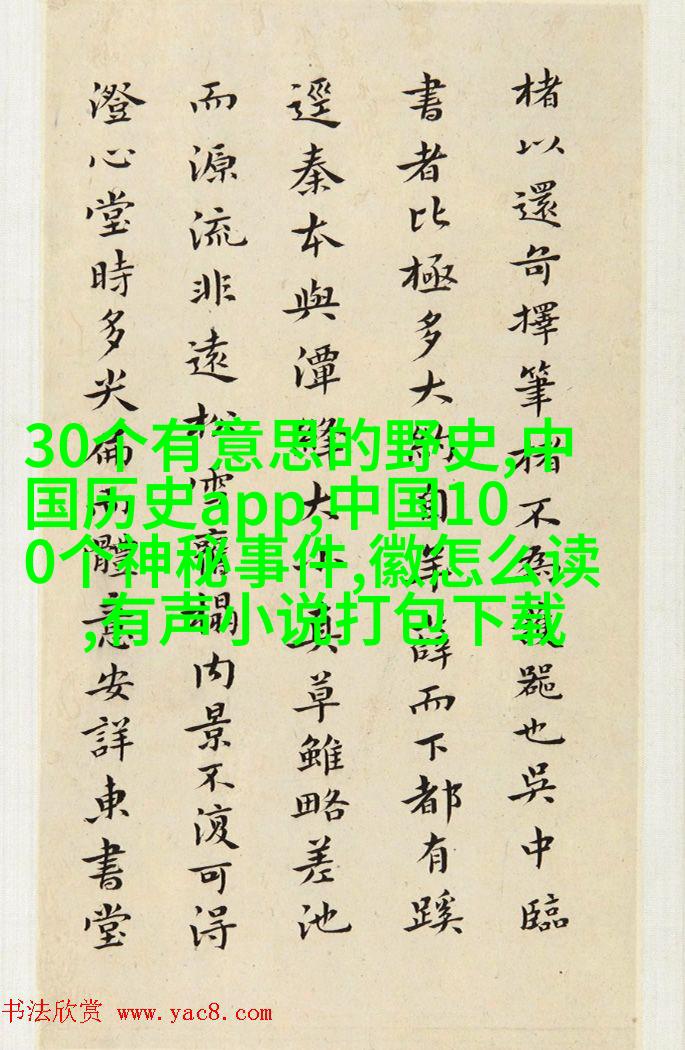 楮以還奇擇筆楮不為器也吳中臨
書者比極多大約自羊薛而下都有蹊
逕秦本與潭絳大小真草雖略差池
而源流非遠松雪齋搨内景不復可得
澄心堂時多尖偏而體意安詳東書堂
30个有意思的野史,中
国历史app,中国10
0个神秘事件,徽怎么读
,有声小说打包下载
书法欣赏 www.yac8.com